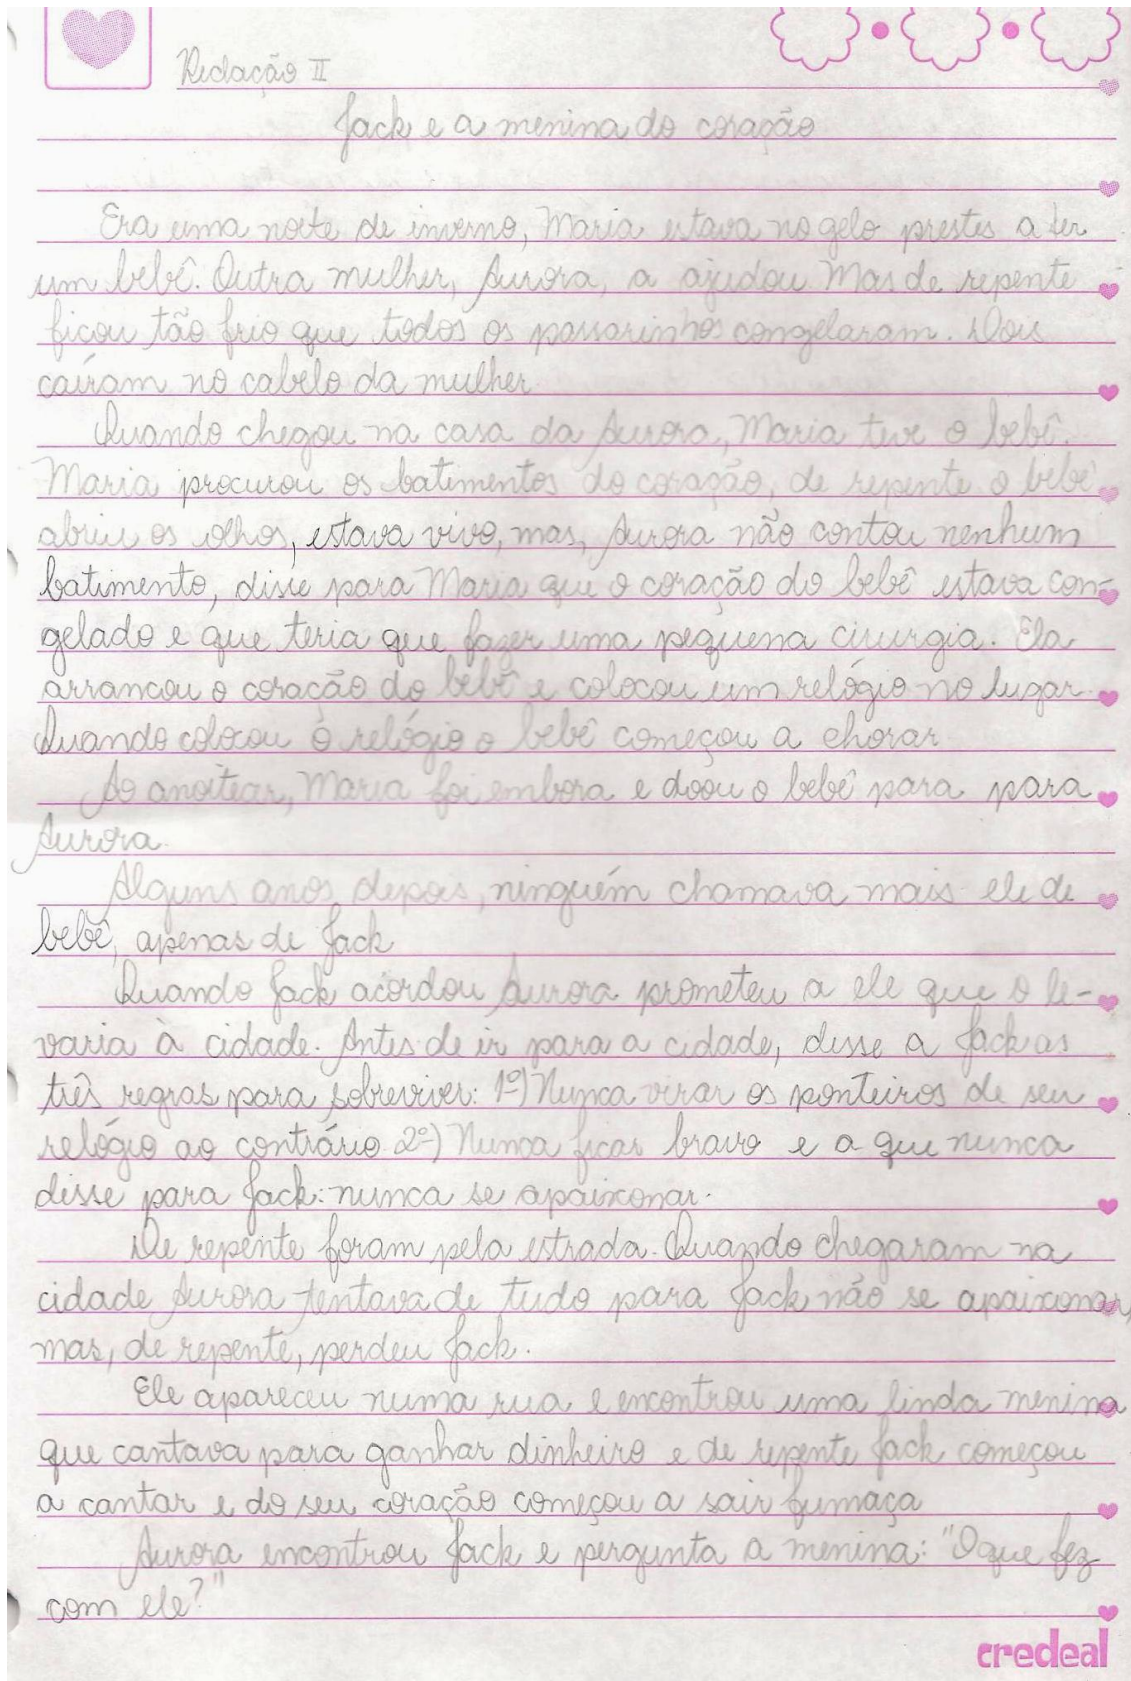 Redação II
Jack e a menina do coração
Era uma noite de inverno, Maria estava no gelo prestes a ter
um bebê. Outra mulher, Aurora, a ajudou Mas de repente
ficou tão frio que todos os passarinhos congelaram. Dois
caíram no cabelo da mulher.
Quando chegou na casa da Aurora, Maria teve o bebê.
Maria procurou os batimentos do coração, de repente o bebê
abriu os olhos, estava vivo, mas, Aurora não contou nenhum
batimento, disse para Maria que o coração do bebê estava con-
gelado e que teria que fazer uma pequena cirurgia. Ela
arrancou o coração do bebê e colocou um relógio no lugar.
Quando colocou o relógio o bebê começou a chorar.
Ao anoitecer, Maria foi embora e doou o bebê para para
Aurora.
Alguns anos depois, ninguém chamava mais ele de
bebê, apenas de Jack
Quando Jack acordou Aurora prometeu a ele que o le-
varia à cidade. Antes de ir para a cidade, disse a Jack as
três regras para sobreviver: 1º) Nunca virar os ponteiros de seu
relógio ao contrário 2º) Nunca ficar bravo e a que nunca
disse para Jack: nunca se apaixonar.
De repente foram pela estrada. Quando chegaram na
cidade Aurora tentava de tudo para Jack não se apaixonar,
mas, de repente, perdeu Jack.
Ele apareceu numa rua e encontrou uma linda menina
que cantava para ganhar dinheiro e de repente Jack começou
a cantar e do seu coração começou a sair fumaça
Aurora encontrou Jack e pergunta a menina: "O que fez
com ele?"
credeal